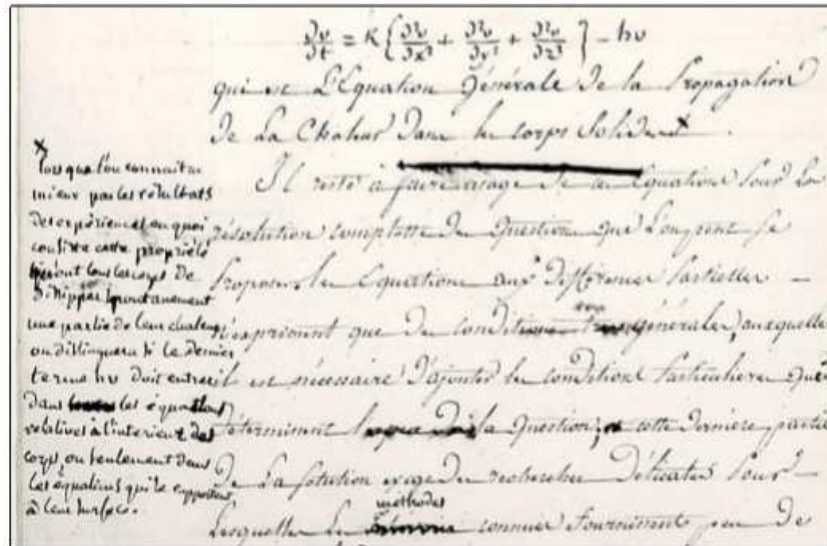 ∂v/∂t = K{∂²v/∂x² + ∂²v/∂y² + ∂²v/∂z²} - hv
qui est l'Equation Générale de la Propagation
de La Chaleur dans les corps Solides x.
Il reste à faire usage de ces Equations pour la
résolution complette des Questions que l'on peut se
proposer, les Equations aux différences partielles
n'expriment que des conditions trop générales, auxquelles
il est nécessaire d'ajouter les conditions particulières qui
déterminent la Question; cette dernière partie
De La solution exige des recherches Délicates pour
lesquelles les méthodes connues fournissent peu de
x
lorsque l'on connaitra
mieux par les résultats
des expériences en quoi
consiste cette propriété
qu'ont tous les corps de
dissiper spontanement
une partie de leur chaleur
on distinguera si le dernier
terme hv doit entrer
dans les équations
relatives à l'interieur des
corps, ou seulement dans
les équations qui se rapportent
à leur surface.